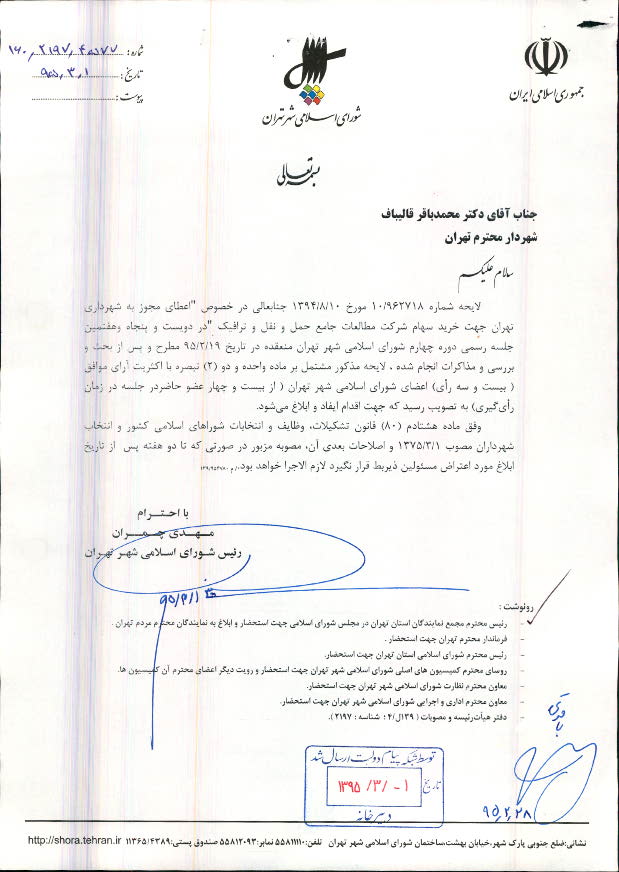 جمهوری اسلامی ایران
شورای اسلامی شهر تهران
شماره: ۱۶۰/۲۱۹۷/۴۵۸۷۷
تاریخ: ۹۵/۳/۱
پیوست:
بسمه تعالی
جناب آقای دکتر محمدباقر قالیباف
شهردار محترم تهران
سلام علیکم
لایحه شماره ۱۰/۹۶۲۷۱۸ مورخ ۱۳۹۴/۸/۱۰ جنابعالی در خصوص "اعطای مجوز به شهرداری
تهران جهت خرید سهام شرکت مطالعات جامع حمل و نقل و ترافیک "در دویست و پنجاه وهفتمین
جلسه رسمی دوره چهارم شورای اسلامی شهر تهران منعقده در تاریخ ۹۵/۲/۱۹ مطرح و پس از بحث و
بررسی و مذاکرات انجام شده ، لایحه مذکور مشتمل بر ماده واحده و دو (۲) تبصره با اکثریت آرای موافق
( بیست و سه رأی) اعضای شورای اسلامی شهر تهران ( از بیست و چهار عضو حاضردر جلسه در زمان
رأی‌گیری) به تصویب رسید که جهت اقدام ایفاد و ابلاغ می‌شود.
وفق ماده هشتادم (۸۰) قانون تشکیلات، وظایف و انتخابات شوراهای اسلامی کشور و انتخاب
شهرداران مصوب ۱۳۷۵/۳/۱ و اصلاحات بعدی آن، مصوبه مزبور در صورتی که تا دو هفته پس از تاریخ
ابلاغ مورد اعتراض مسئولین ذیربط قرار نگیرد لازم الاجرا خواهد بود.
با احترام
مهدی چمران
رئیس شورای اسلامی شهر تهران
۹۵/۳/۱
رونوشت :
- رئیس محترم مجمع نمایندگان استان تهران در مجلس شورای اسلامی جهت استحضار و ابلاغ به نمایندگان محترم مردم تهران .
- فرماندار محترم تهران جهت استحضار .
- رئیس محترم شورای اسلامی استان تهران جهت استحضار.
- روسای محترم کمیسیون های اصلی شورای اسلامی شهر تهران جهت استحضار و رویت دیگر اعضای محترم آن کمیسیون ها.
- معاون محترم نظارت شورای اسلامی شهر تهران جهت استحضار.
- معاون محترم اداری و اجرایی شورای اسلامی شهر تهران جهت استحضار.
- دفتر هیأت‌رئیسه و مصوبات ( ۱۳۹ل/۴؛ شناسه : ۲۱۹۷ ).
توسط شبکه پیام دولت ارسال شد
تاریخ ۱- /۳/ ۱۳۹۵
دبیرخانه
۹۵,۲,۲۸
نشانی:ضلع جنوبی پارک شهر،خیابان بهشت،ساختمان شورای اسلامی شهر تهران تلفن:۵۵۸۱۱۱۱۰ نمابر:۵۵۸۱۲۰۹۳ صندوق پستی:۱۱۳۶۵/۴۳۸۹ http://shora.tehran.ir